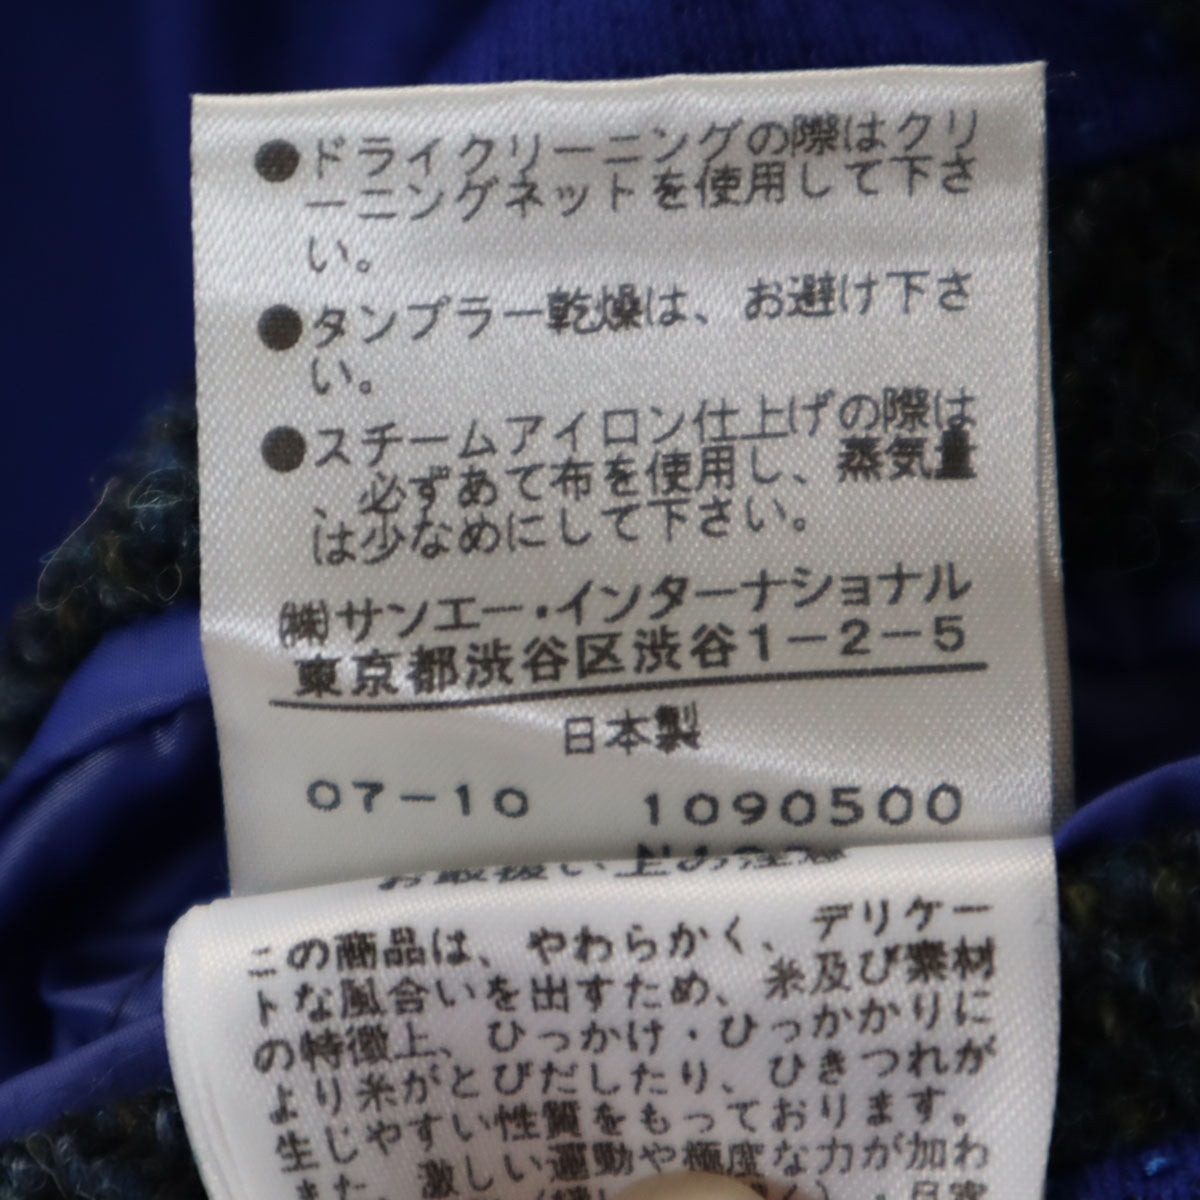 ●ドライクリーニングの際はクリ
ーニングネットを使用して下さ
い。
●タンブラー乾燥は、お避け下さ
い。
●スチームアイロン仕上げの際は
、必ずあて布を使用し、蒸気量
は少なめにして下さい。
㈱サンエー・インターナショナル
東京都渋谷区渋谷1-2-5
日本製
07-10 1090500
お取扱い上の注意
この商品は、やわらかく、デリケー
トな風合いを出すため、糸及び素材
の特徴上、ひっかけ・ひっかかりに
より糸がとびだしたり、ひきつれが
生じやすい性質をもっております。
また、激しい運動や極度な力が加わ